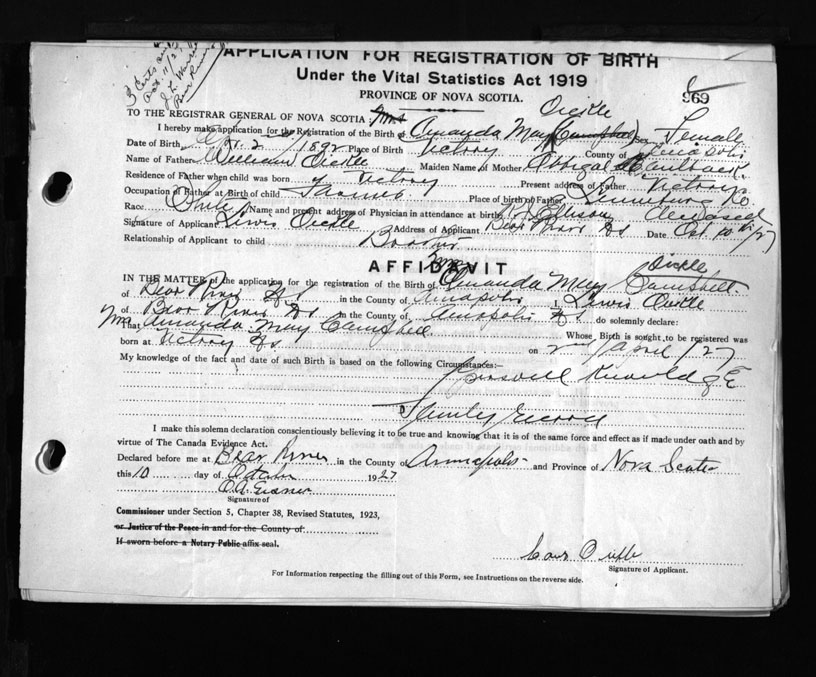 3 Certs
Oct. 11/27
J. L. Warren
Bear River
APPLICATION FOR REGISTRATION OF BIRTH
Under the Vital Statistics Act 1919
PROVINCE OF NOVA SCOTIA.
969
TO THE REGISTRAR GENERAL OF NOVA SCOTIA Mrs Oickle
I hereby make application for the Registration of the Birth of Amanda May (Campbell) Sex Female
Date of Birth 2 1892 Place of Birth Victory County of Annapolis
Name of Father William Oickle Maiden Name of Mother
Residence of Father when child was born Victory Present address of Father Victory
Occupation of Father at Birth of child Place of birth of Father Lunenburg Co.
Race White Name and present address of Physician in attendance at birth Ellison Deceased
Signature of Applicant Lewis Oickle Address of Applicant Bear River NS Date Oct 10th/27
Relationship of Applicant to child Brother
AFFIDAVIT
IN THE MATTER of the application for the registration of the Birth of Mrs Amanda May Oickle Campbell
of Bear River NS in the County of Annapolis I, Lewis Oickle
of Bear River NS in the County of Annapolis NS do solemnly declare:
That Mrs Amanda May Campbell Whose Birth is sought to be registered was
born at Victory NS on 2nd April /27
My knowledge of the fact and date of such Birth is based on the following Circumstances:—
Personell Knowledge
Family Record
I make this solemn declaration conscientiously believing it to be true and knowing that it is of the same force and effect as if made under oath and by
virtue of The Canada Evidence Act.
Declared before me at Bear River in the County of Annapolis and Province of Nova Scotia
this 10 day of October 1927
Signature of
Commissioner under Section 5, Chapter 38, Revised Statutes, 1923,
or Justice of the Peace in and for the County of
If sworn before a Notary Public affix seal.
Oickle
Signature of Applicant.
For Information respecting the filling out of this Form, see Instructions on the reverse side.